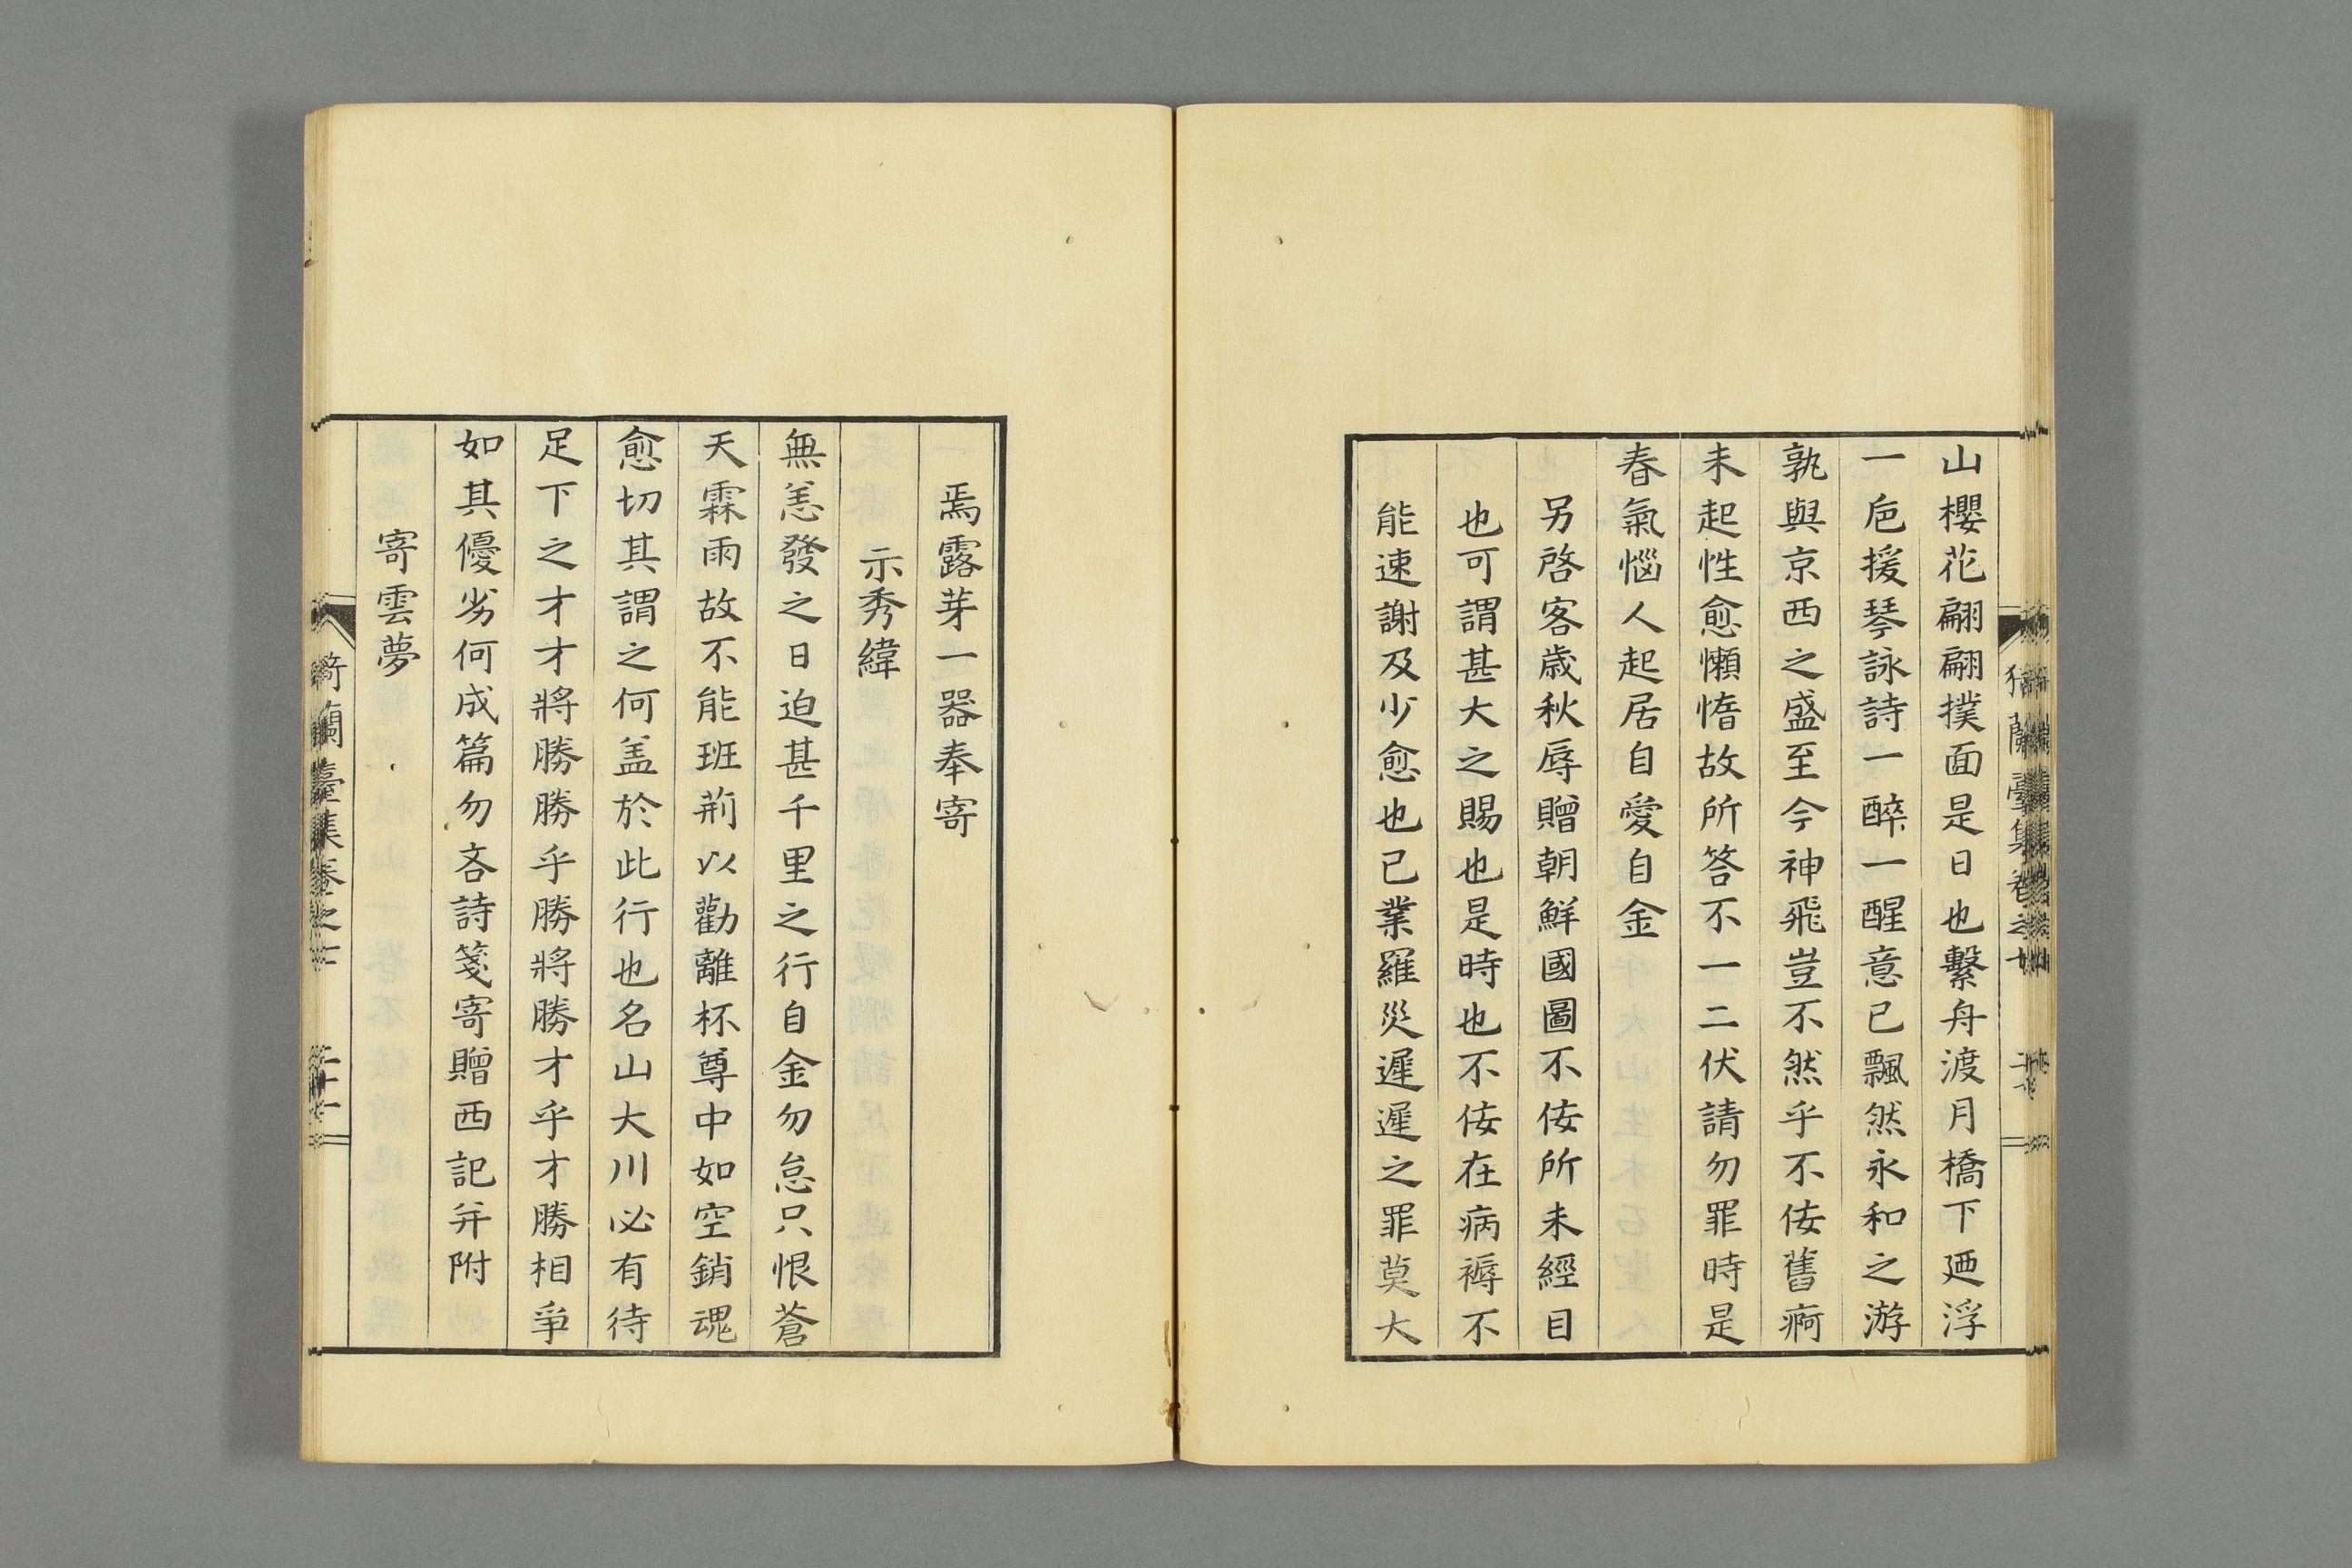 山櫻花翩翩撲面是日也繫舟渡月橋下廼浮
一巵援琴詠詩一醉一醒意已飄然永和之游
孰與京西之盛至今神飛豈不然乎不侫舊痾
未起性愈懶惰故所答不一二伏請勿罪時是
春氣惱人起居自愛自金
另啓客歳秋辱贈朝鮮國圖不侫所未經目
也可謂甚大之賜也是時也不侫在病褥不
能速謝及少愈也已業羅災遲遲之罪莫大
焉露芽一器奉寄
示秀緯
無恙發之日迫甚千里之行自金勿怠只恨蒼
天霖雨故不能班荊以勸離杯尊中如空銷魂
愈切其謂之何盖於此行也名山大川必有待
足下之才才將勝勝乎勝將勝才乎才勝相爭
如其優劣何成篇勿吝詩箋寄贈西記并附
寄雲夢
蘭臺集卷之
二十一